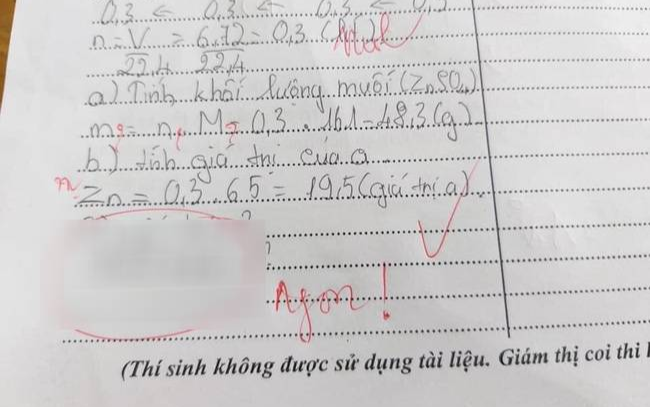 0,3 ← 0,3 ← 0,3 ← 0,3
n = V/22,4 = 6,72/22,4 = 0,3 (
mol
a) Tính khối lượng muối (ZnSO₄)
m = n . M = 0,3 . 161 = 48,3 (g)
b) tính giá trị của a
m Zn = 0,3 . 65 = 19,5 (giá trị a)
Agon!
(Thí sinh không được sử dụng tài liệu. Giám thị coi thi